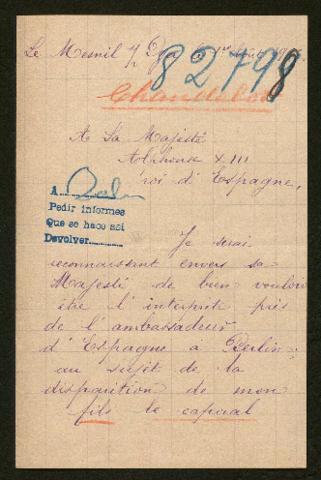 Le Mesnil s/
82798
A Sa Majesté
Alphonse XIII
roi d'Espagne,
A
Pedir informes
Que se hace asi
Devolver
Je serai
reconnaissant envers sa
Majesté de bien vouloir
être l'interprète près
de l'ambassadeur
d'Espagne à Berlin
au sujet de la
disparition de mon
fils le caporal